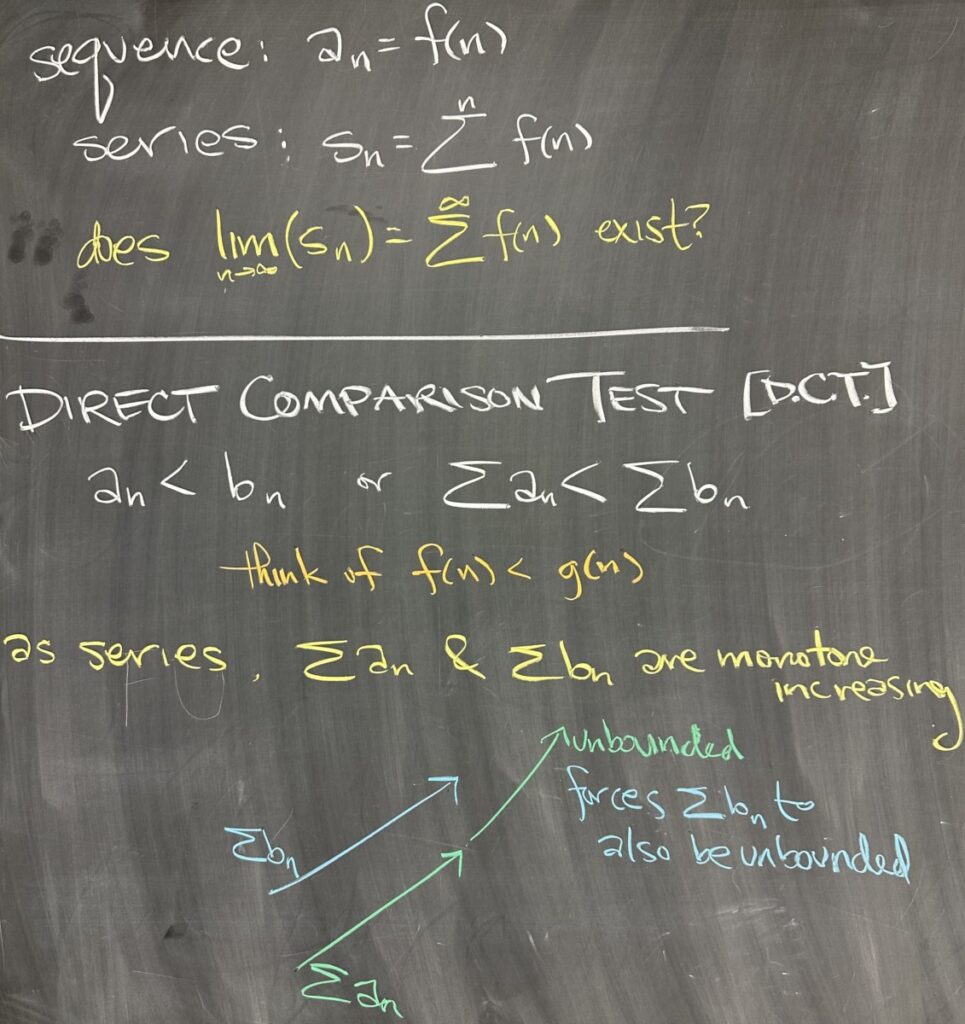 sequence: aₙ = f(n)
series: sₙ = ∑ⁿ f(n)
does lim n→∞ (sₙ) = ∑^∞ f(n) exist?
DIRECT COMPARISON TEST [D.C.T.]
aₙ < bₙ or ∑aₙ < ∑bₙ
think of f(n) < g(n)
as series, ∑aₙ & ∑bₙ are monotone
increasing
unbounded
forces ∑bₙ to
also be unbounded
∑bₙ
∑aₙ